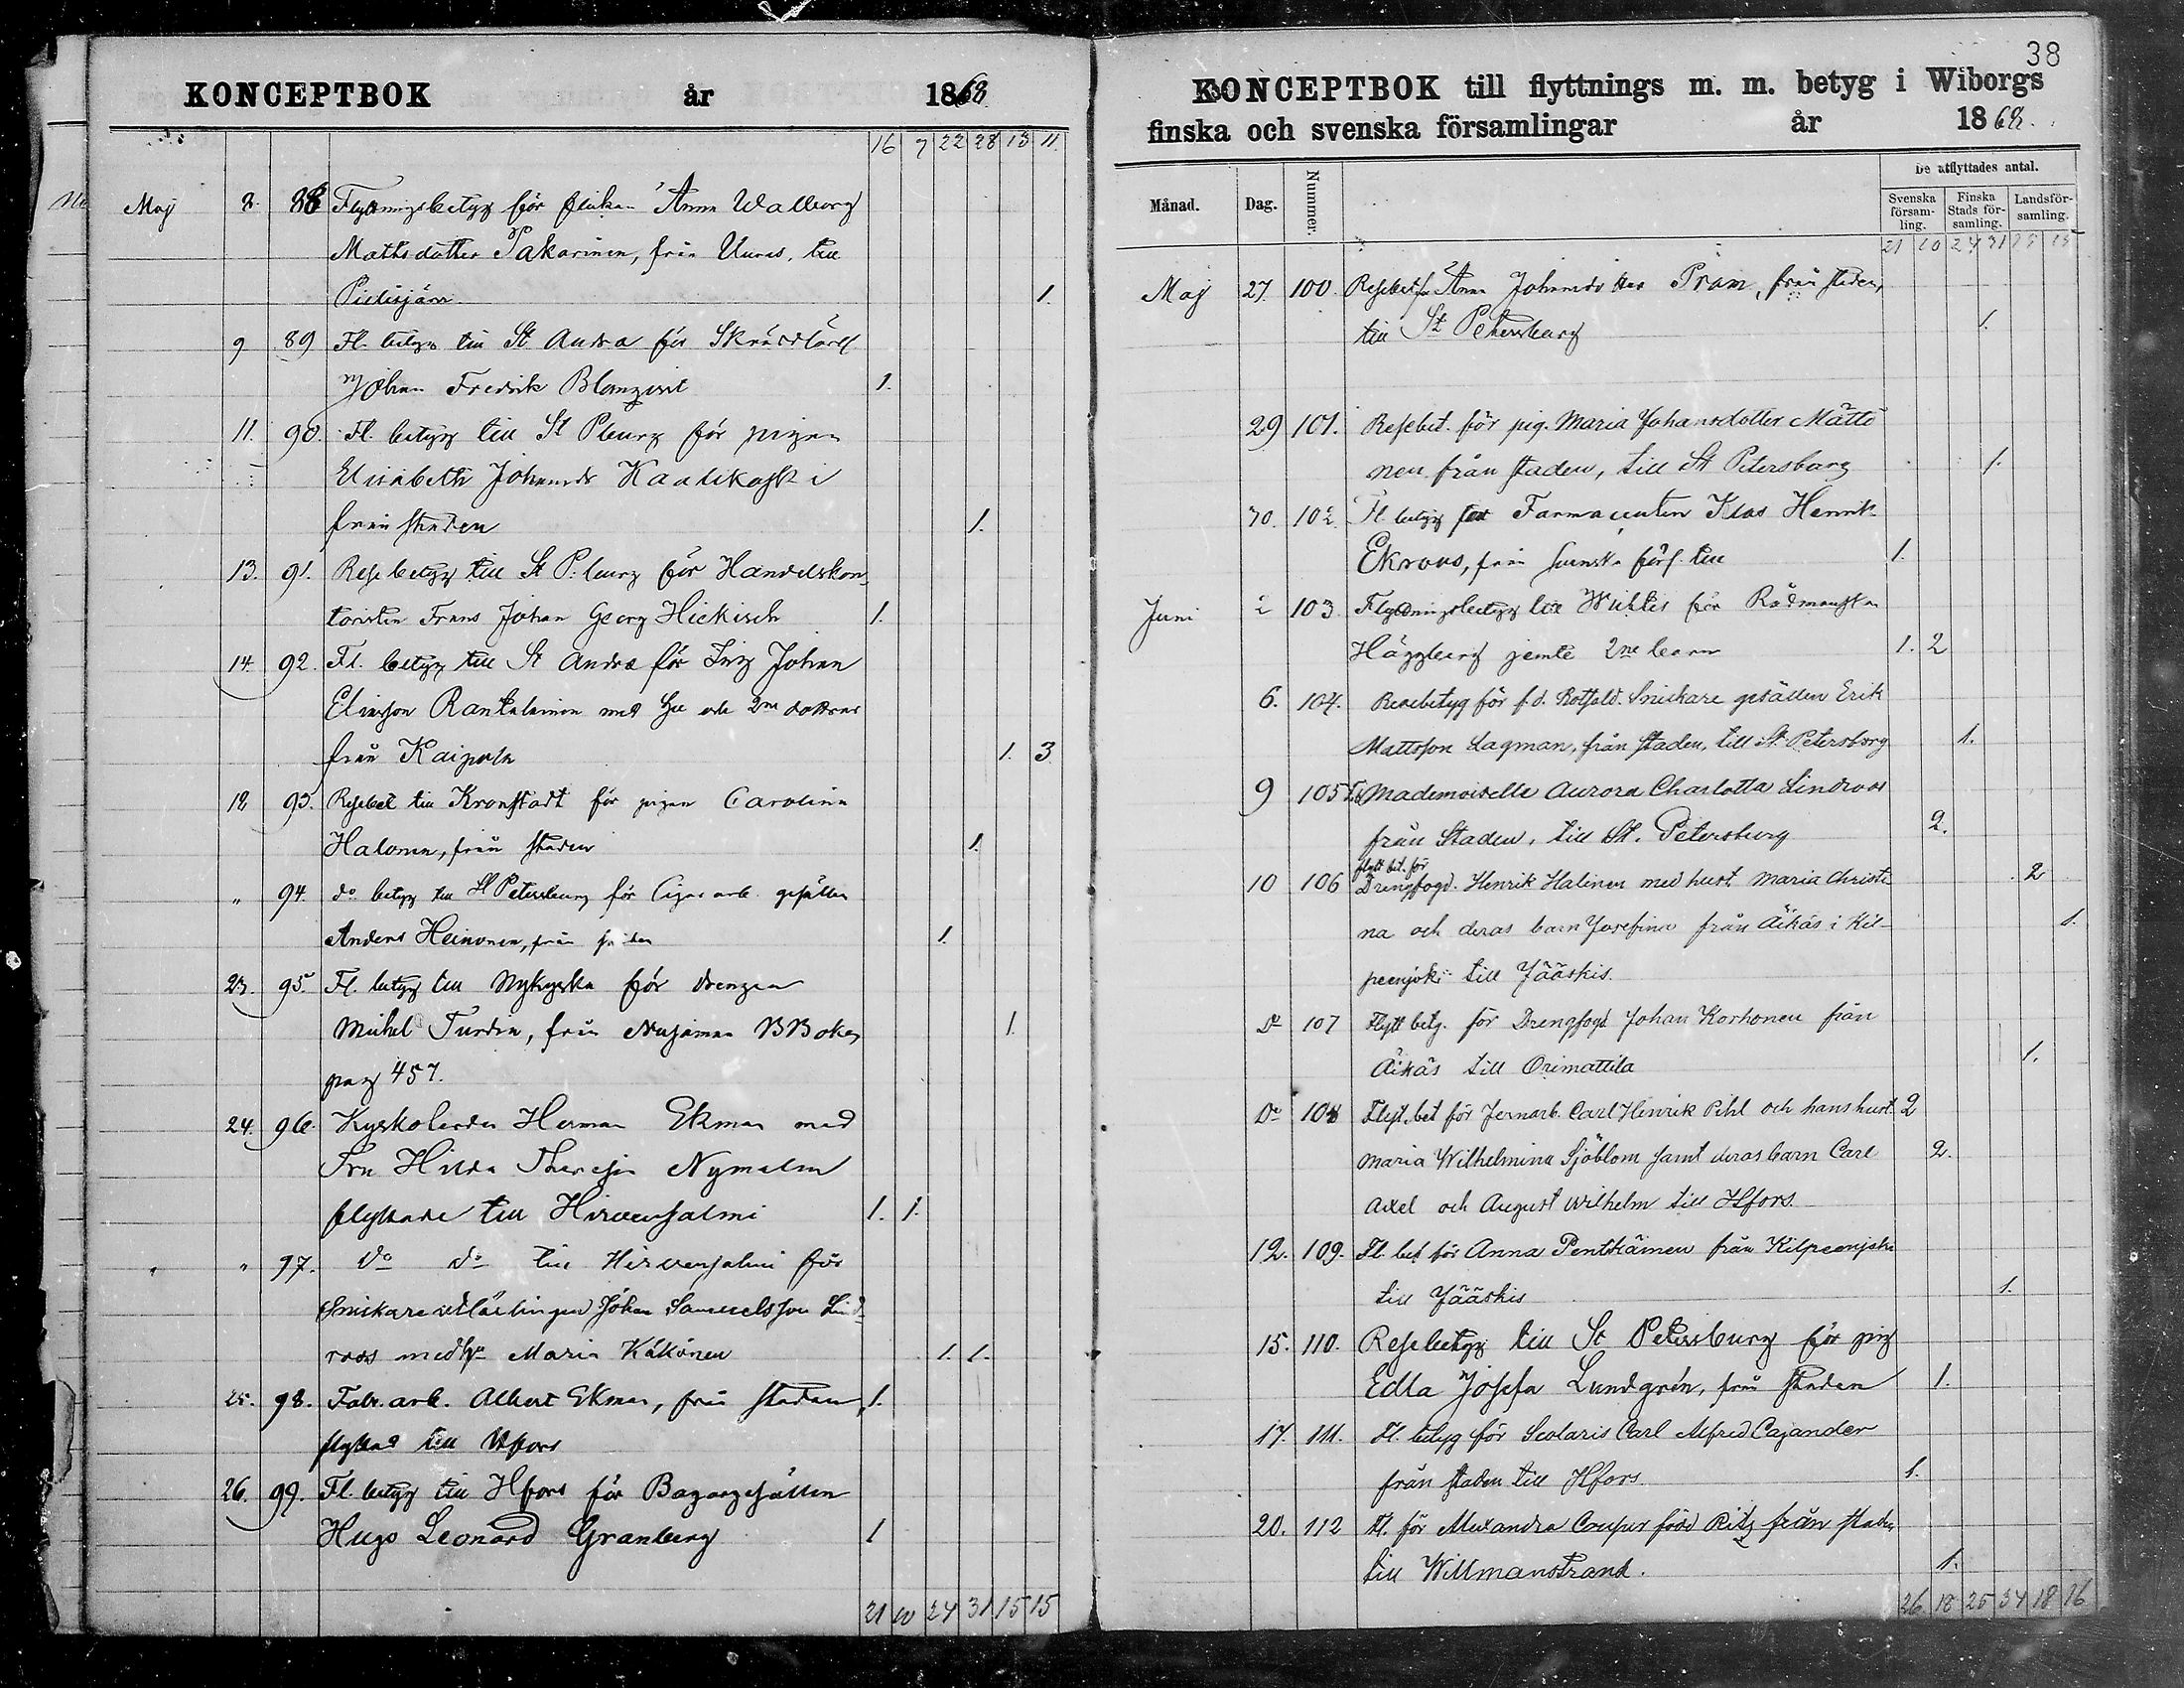 38
KONCEPTBOK år 1868
16 7 22 28 13 11
Maj 8. 88 Flyttningsbetyg för flickan Anna Walborg
Mattsdotter Pakarinen, från Uuras, till
Pielisjärvi 1.
9 89 Fl. betyg till St. Andrae för Skräddlärl
Johan Fredrik Blomqvist 1.
11. 90. Fl. betyg till St Pburg för pigan
Elisabeth Johansdr
från staden 1.
13. 91. Resebetyg till St P:burg för Handelskon-
toristen Frans Johan Georg Hickisch 1.
14. 92. Fl. betyg till St Andrae för Johan
Eliasson Rantalainen med Hu och 2ne döttrar
från 1. 3
18 93. Resebet till Kronstadt för pigan Carolina
Halonen, från staden 1.
" 94. do betyg till St Petersburg för Cigarr arb. gesällen
Anders Heinonen, från staden 1.
23. 95. Fl. betyg till Nykyrka för drengen
Mickel Turdin, från BBoken 1.
pag 457.
24. 96. Kyskolärder Herman Ekman med
Fru Hilda Theresia Nymalm
flyttade till Hirvensalmi 1. 1.
" 97. do do till Hirvensalmi för
Snickare utlärlingen Johan Samuelsson Lind-
roos med hu Maria Käkönen 1. 1.
25. 98. Fabr. arb. Albert Ekman, från staden, 1.
flyttad till Hfors
26. 99. Fl. betyg till Hfors för Bagargesällen
Hugo Leonard Granberg 1
21 10 24 31 15 15
KONCEPTBOK till flyttnings m. m. betyg i Wiborgs
finska och svenska församlingar år 1868.
Månad. Dag. Nummer. De utflyttades antal.
Svenska försam-ling. Finska Stads för-samling. Landsför-samling.
21 10 24 31 15 15
Maj 27. 100. Resebet för Anna Johansdotter Pram, från staden,
till St Petersburg 1.
29 101. Resebet. för pig. Maria Johansdotter Mättö
nen från staden, till St Petersburg 1.
30. 102. Fl. betyg för Farmaceuten Klas Henrik
Ekroos, från svenska förs. till 1.
Juni 2 103. Flyttningsbetyg till Wichtis för Rådmanskan
Häggberg jemte 2ne barn 1. 2
6. 104. Resebetyg för f.d. Rotsold. Snickare gesällen Erik
Mattsson Lagman, från staden, till St. Petersborg 1.
9 105 Mademoiselle Aurora Charlotta Lindroos
från Staden, till St. Petersburg 2.
flytt bet. för
10 106 Drengfogd. Henrik Halinen med hust. Maria Christi- 2
na och deras barn Josefina från Äikäs i Kil- 1.
peenjoki till Jääskis.
Do 107 Flytt betg. för Drengfogd Johan Korhonen från
Äikäs till Orimattila 1.
Do 108 Flyt. bet för Jernarb. Carl Henrik Pihl och hans hust. 2
Maria Wilhelmina Sjöblom samt deras barn Carl 2.
Axel och August Wilhelm till Hfors.
12. 109. Fl. bet för Anna Penttkäinen från Kilpeenjoki
till Jääskis 1.
15. 110. Resebetyg till St Petersburg för pig
Edla Josefa Lundgrén, från staden 1.
17. 111. Fl. betyg för Scolaris Carl Alfred Cajander
från staden till Hfors. 1.
20. 112 Fl. för Alexandra Couper född Ritz från staden
till Willmanstrand. 1.
26 18 25 34 18 16